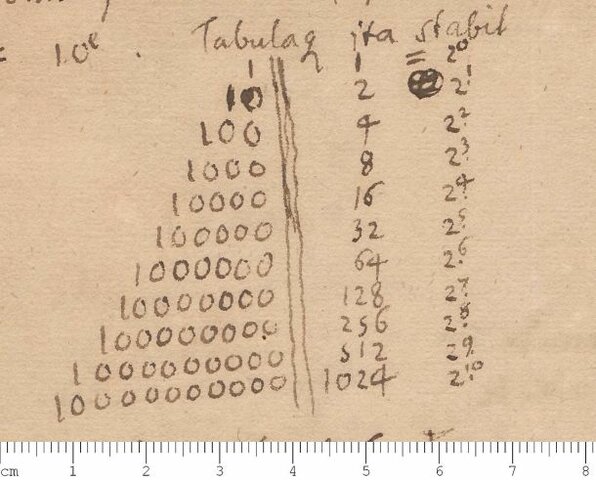 = 10^e. Tabula ita stabit
1 1 = 2^0
10 2 2^1
100 4 2^2
1000 8 2^3
10000 16 2^4
100000 32 2^5
1000000 64 2^6
10000000 128 2^7
100000000 256 2^8
1000000000 512 2^9
10000000000 1024 2^10
cm 1 2 3 4 5 6 7 8